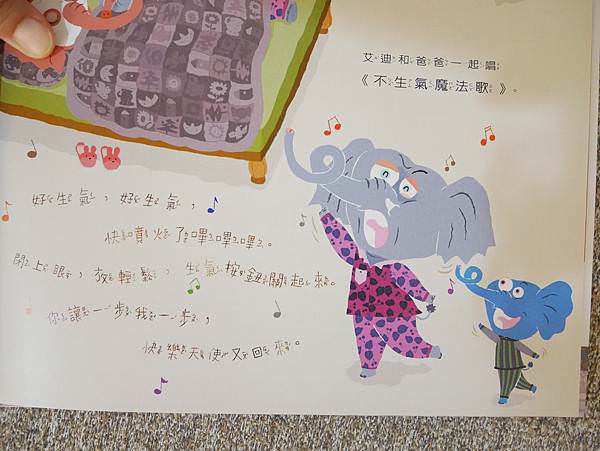 艾迪和爸爸一起唱
《不生氣魔法歌》。
好生氣，好生氣，
快噴火了嗶嗶嗶。
閉上眼，放輕鬆，生氣按鈕關起來。
你讓一步我一步，
快樂天使又回來。